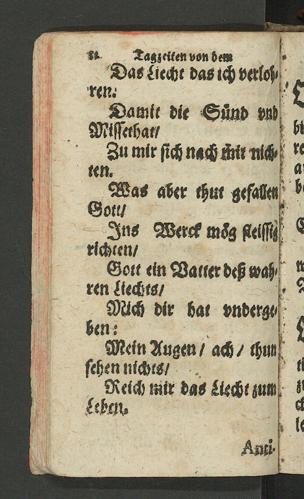 82 Tagzeiten von dem
Das Liecht das ich verloh-
ren:
Damit die Sünd vnd
Missethat/
Zu mir sich nach mir nich-
ten.
Was aber thut gefallen
Gott/
Ins Werck mög fleissig
richten/
Gott ein Vatter deß wah-
ren Liechts/
Mich dir hat vnderge-
ben:
Mein Augen / ach / thun
sehen nichts/
Reich mir das Liecht zum
Leben.
Anti-